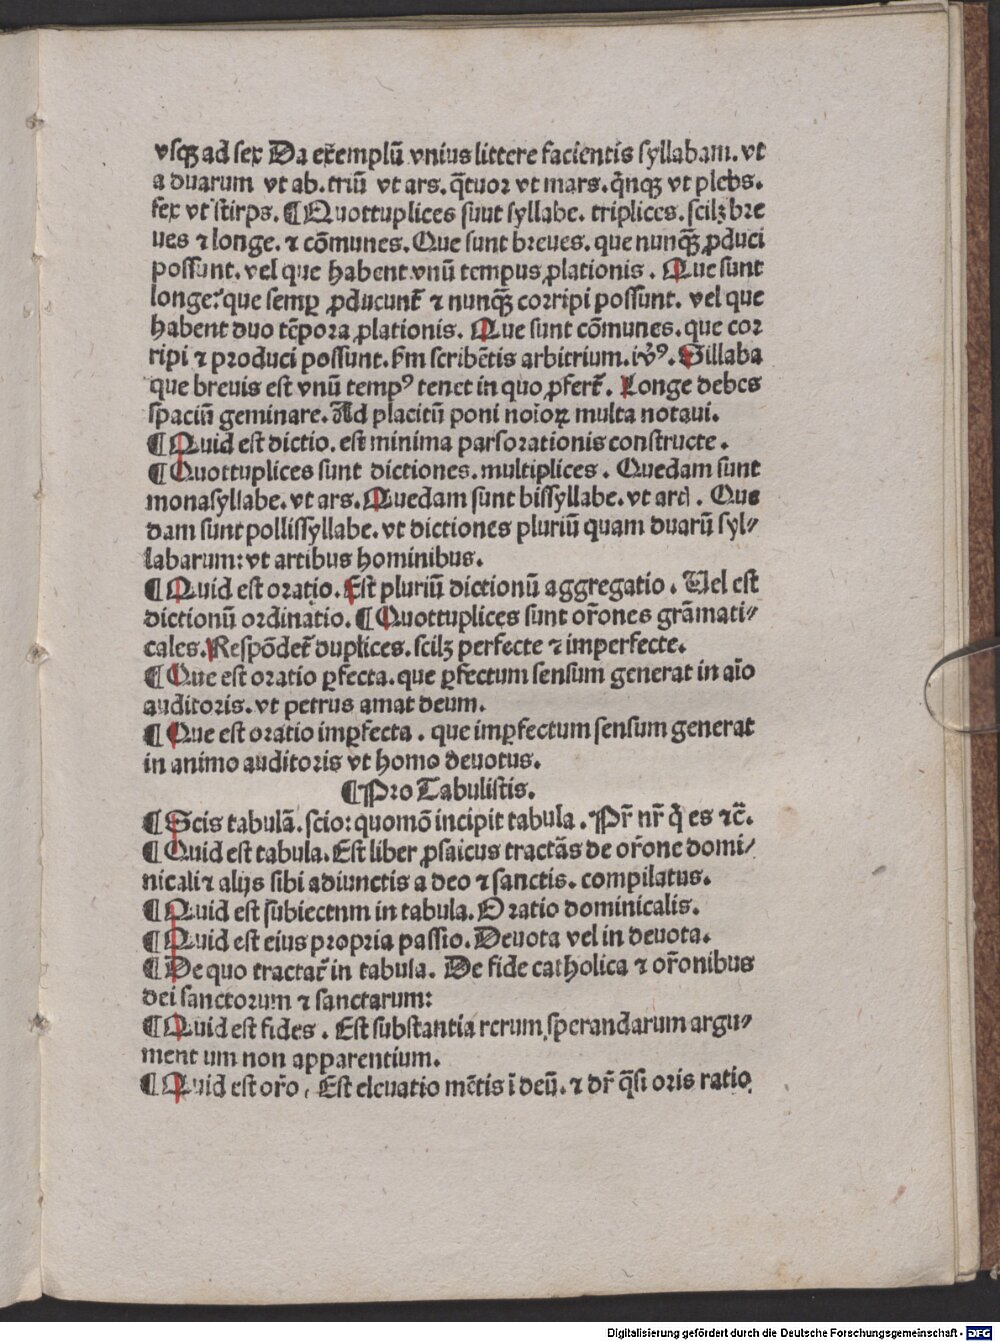 vsqꝫ ad sex Da exemplū vnius littere facientis syllabam. vt
a duarum vt ab. triū vt ars. q̄tuor vt mars. q̇nqꝫ vt plebs.
sex vt stirps. ¶ Quottuplices sunt syllabe. triplices. scilꝫ bre
ues ⁊ longe. ⁊ cōmunes. Que sunt breues. que nunqꝫ̄ ꝓduci
possunt. vel que habent vnū tempus ꝓlationis. Que sunt
longe: que semꝑ ꝓducunt᷑ ⁊ nunqꝫ̄ corripi possunt. vel que
habent duo tēpora ꝓlationis. Que sunt cōmunes. que cor
ripi ⁊ produci possunt. s̄m scribētis arbitrium. Sillaba
que breuis est vnū tempꝰ tenet in quo ꝓfert᷑. Longe debes
spaciū geminare. Ad placitū poni noīoꝝ multa notaui.
¶ Quid est dictio. est minima pars orationis constructe.
¶ Quottuplices sunt dictiones. multiplices. Quedam sunt
monasyllabe. vt ars. Quedam sunt bissyllabe. vt ard. Que
dam sunt pollissyllabe. vt dictiones pluriū quam duarū syl⸗
labarum: vt artibus hominibus.
¶ Quid est oratio. Est pluriū dictionū aggregatio. Uel est
dictionū ordinatio. ¶ Quottuplices sunt or̄ones grāmati⸗
cales. Respōdet᷑ duplices. scilꝫ perfecte ⁊ imperfecte.
¶ Que est oratio ꝑfecta. que ꝑfectum sensum generat in aīo
auditoris. vt petrus amat deum.
¶ Que est oratio imꝑfecta. que imꝑfectum sensum generat
in animo auditoris vt homo deuotus.
¶ Pro Tabulistis.
¶ Scis tabulā. scio: quomō incipit tabula. Pr̄ nr̄ q̇ es ⁊c̄.
¶ Quid est tabula. Est liber ꝓsaicus tractās de or̄one domi⸗
nicali ⁊ alijs sibi adiunctis a deo ⁊ sanctis. compilatus.
¶ Quid est subiectnm in tabula. Oratio dominicalis.
¶ Quid est eius propria passio. Deuota vel in deuota.
¶ De quo tractat᷑ in tabula. De fide catholica ⁊ or̄onibus
dei sanctorum ⁊ sanctarum:
¶ Quid est fides. Est substantia rerum sperandarum argu⸗
ment um non apparentium.
¶ Quid est or̄o. Est eleuatio mētis ī deū. ⁊ dr̄ q̄si oris ratio
Digitalisierung gefördert durch die Deutsche Forschungsgemeinschaft - DFG